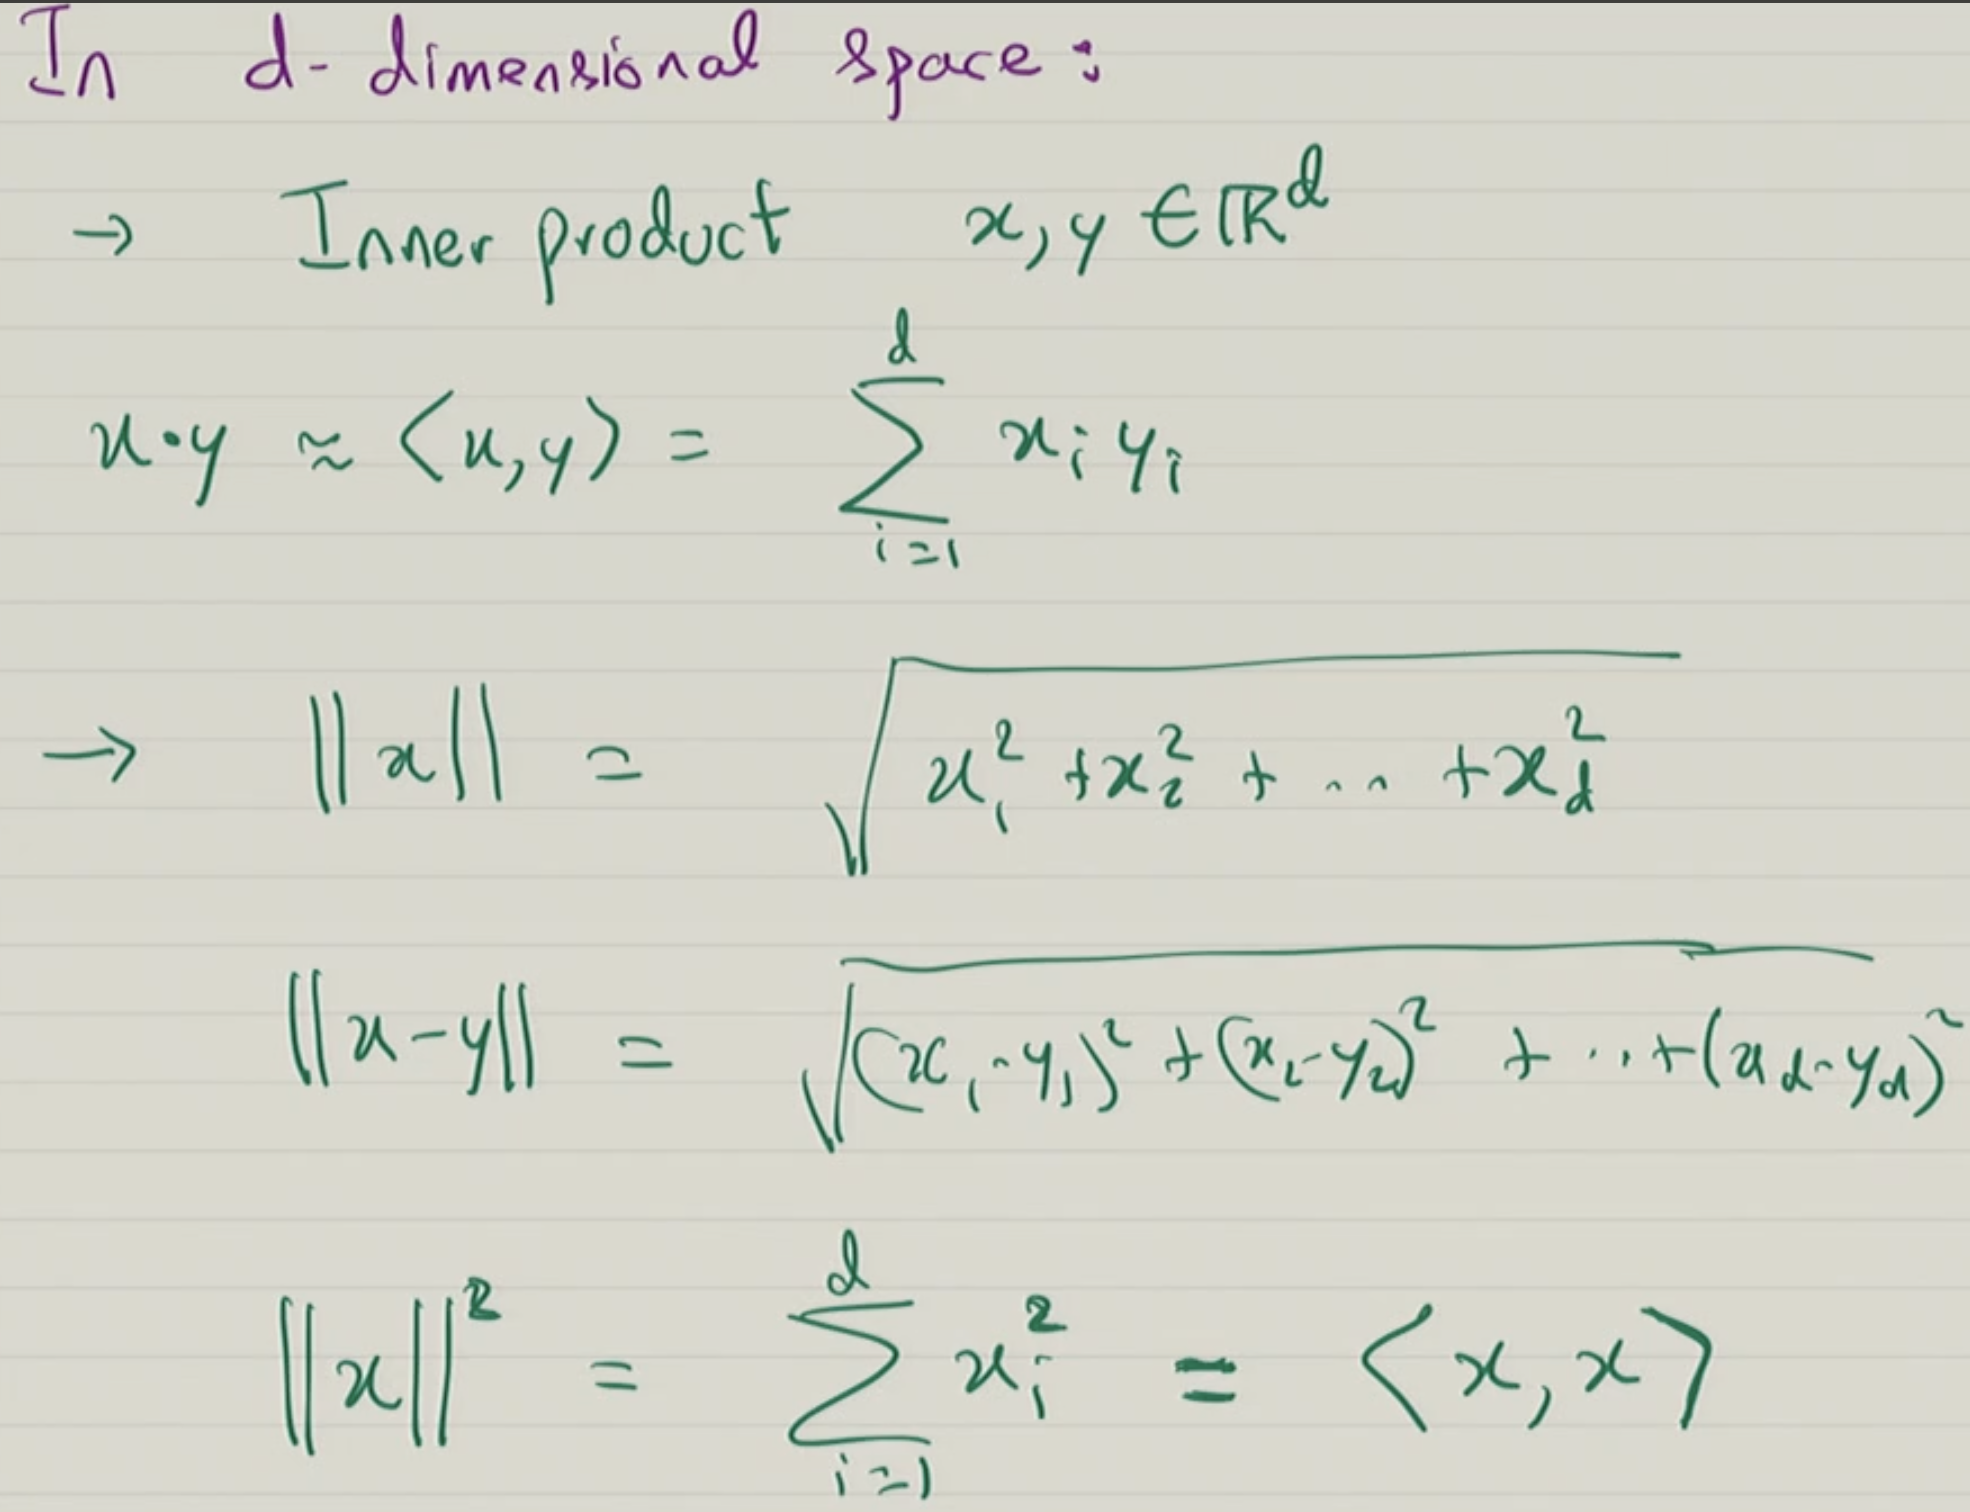 In d-dimensional space:
→ Inner product x, y ∈ ℝ^d
x·y ≈ ⟨x,y⟩ = ∑_{i=1}^{d} x_i y_i
→ ||x|| = √(x_1^2 + x_2^2 + .. + x_d^2)
||x-y|| = √((x_1-y_1)^2 + (x_2-y_2)^2 + ... + (x_d-y_d)^2)
||x||^2 = ∑_{i=1}^{d} x_i^2 = ⟨x, x⟩